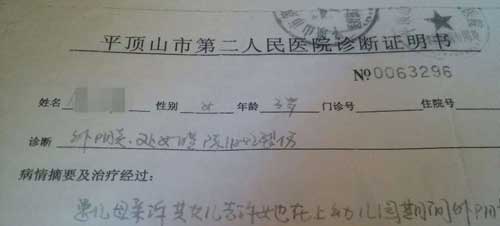 平顶山市第二人民医院诊断证明书
№0063296
姓名 性别 女 年龄 3岁 门诊号 住院号
诊断 外阴炎、处女膜
病情摘要及治疗经过:
患儿母亲诉其女儿告诉她在上幼儿园期间外阴